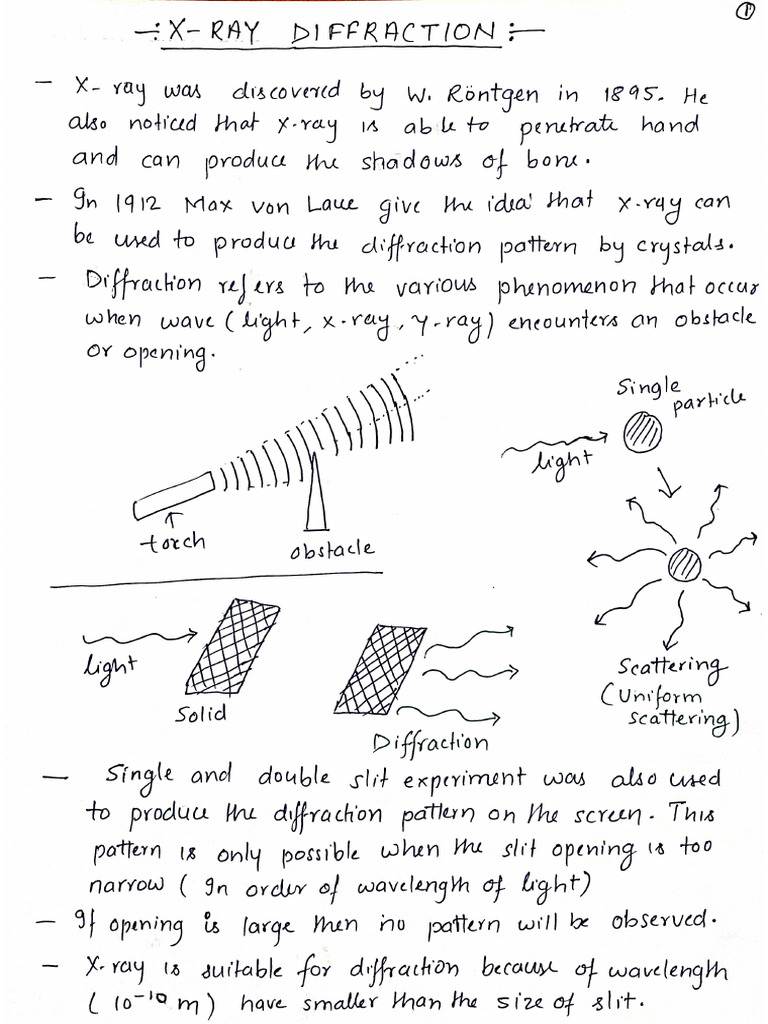 1
-:X-RAY DIFFRACTION:-
- X-ray was discovered by W. Röntgen in 1895. He
also noticed that X-ray is able to penetrate hand
and can produce the shadows of bone.
- In 1912 Max von Laue give the idea that x-ray can
be used to produce the diffraction pattern by crystals.
- Diffraction refers to the various phenomenon that occur
when wave (light, x-ray, γ-ray) encounters an obstacle
or opening.
torch
obstacle
Single
particle
light
Scattering
(Uniform
scattering)
light
Solid
Diffraction
- Single and double slit experiment was also used
to produce the diffraction pattern on the screen. This
pattern is only possible when the slit opening is too
narrow (In order of wavelength of light)
- If opening is large then no pattern will be observed.
- X-ray is suitable for diffraction because of wavelength
(10⁻¹⁰ m) have smaller than the size of slit.